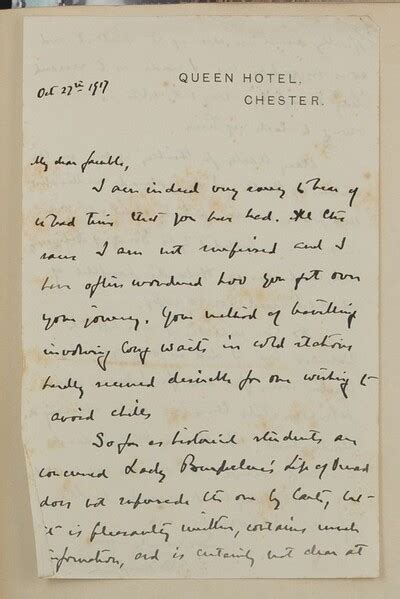 QUEEN HOTEL,
CHESTER.
Oct 27th 1917
My dear
I am indeed very sorry to hear of
bad time that you have had. All the
same I am not surprised and I
have often wondered how you got over
your journey. Your method of travelling
involving long waits in cold stations
hardly seemed desirable for one wishing to
avoid chills
So far as historical students are
concerned Lady Life of
does not supersede the one by but
it is pleasantly written, contains much
information, and is certainly not dear at